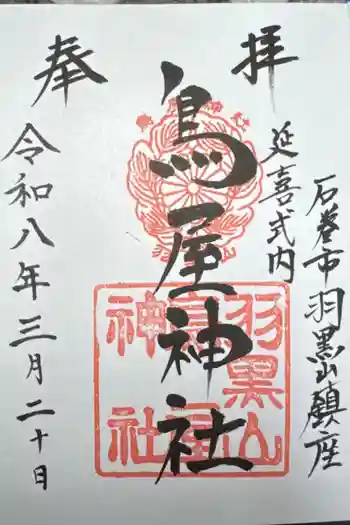 石巻市羽黒山鎮座
延喜式内
奉拝
鳥屋神社
羽黒山
鳥屋
神社
令和八年三月二十日